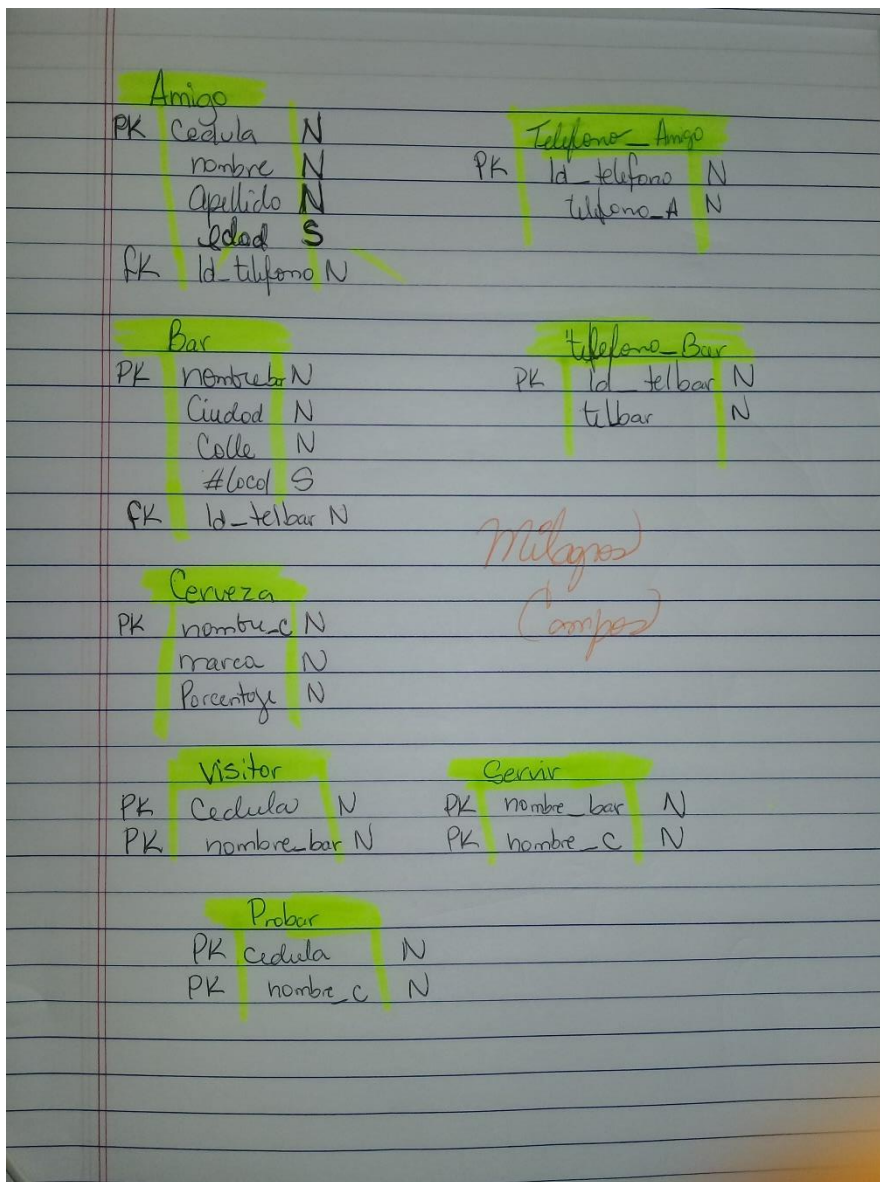 Amigo
PK Cedula N
nombre N
Apellido N
edad S
fK Id_telefono N
Telefono_Amigo
PK Id_telefono N
telefono_A N
Bar
PK nombrebar N
Ciudad N
Calle N
#local S
fK Id_telbar N
telefono_Bar
PK id_telbar N
telbar N
Milagros
Campos
Cerveza
PK nombre_c N
marca N
Porcentaje N
Visitar
PK Cedula N
PK nombre_bar N
Servir
PK nombre_bar N
PK nombre_C N
Probar
PK cedula N
PK nombre_c N